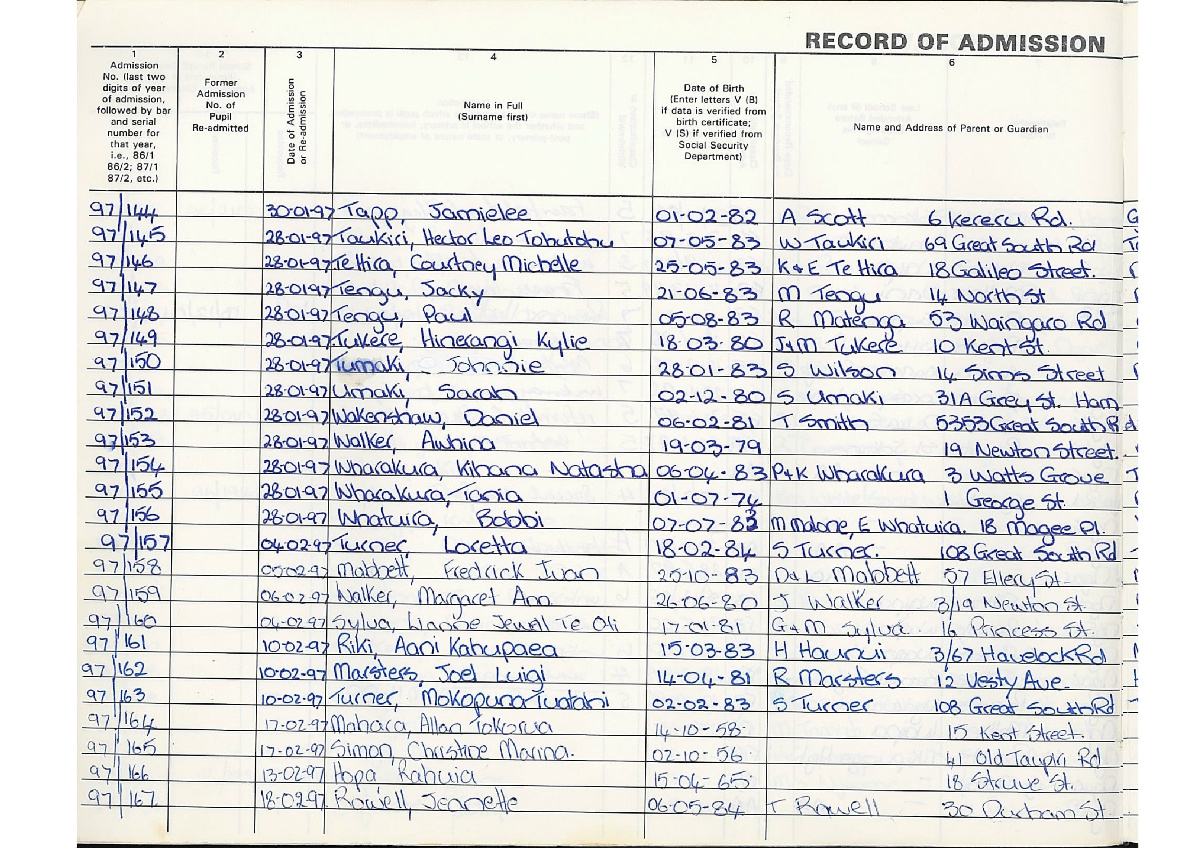 RECORD OF ADMISSION
1 2 3 4 5 6
Admission No. (last two digits of year of admission, followed by bar and serial number for that year, i.e., 86/1 86/2; 87/1 87/2, etc.)
Former Admission No. of Pupil Re-admitted
Date of Admission or Re-admission
Name in Full (Surname first)
Date of Birth (Enter letters V (B) if data is verified from birth certificate; V (S) if verified from Social Security Department)
Name and Address of Parent or Guardian
97/144 30-01-97 Tapp, Jamielee 01-02-82 A Scott 6 Kereru Rd.
97/145 28-01-97 Taukiri, Hector Leo Tobutohu 07-05-83 W Taukiri 69 Great South Rd
97/146 28-01-97 Te Hira, Courtney Michelle 25-05-83 K & E Te Hira 18 Galileo Street.
97/147 28-01-97 Tengu, Jacky 21-06-83 M Tengu 14 North St
97/148 28-01-97 Tengu, Paul 05-08-83 R Matenga 53 Waingaro Rd
97/149 28-01-97 Tukere, Hinerangi Kylie 18-03-80 J&M Tukere 10 Kent St.
97/150 28-01-97 Tumaki, Johnnie 28-01-83 S Wilson 14 Sims Street
97/151 28-01-97 Umaki, Sarah 02-12-80 S Umaki 31A Grey St. Ham
97/152 28-01-97 Wakenshaw, Daniel 06-02-81 T Smith 5353 Great South Rd
97/153 28-01-97 Walker, Awhina 19-03-79 19 Newton Street.
97/154 28-01-97 Wharakura, Kihana Natasha 06-04-83 P&K Wharakura 3 Watts Grove
97/155 28-01-97 Wharakura, Tania 01-07-74 1 George St.
97/156 28-01-97 Whatuira, Bobbi 07-07-83 M Malone, E Whatuira. 18 Magee Pl.
97/157 04-02-97 Turner, Loretta 18-02-84 S Turner. 108 Great South Rd
97/158 05-02-97 Mabbett, Fredrick Ivan 25-10-83 D & L Mabbett 57 Ellery St.
97/159 06-02-97 Walker, Margaret Ann 26-06-80 J Walker 3/19 Newton St.
97/160 04-02-97 Sylva, Jewel Te Oti 17-01-81 G & M Sylva. 16 Princess St.
97/161 10-02-97 Riki, Aani Kahupaea 15-03-83 H Haunui 3/67 Havelock Rd
97/162 10-02-97 Marsters, Joel Luigi 14-04-81 R Marsters 12 Vesty Ave.
97/163 10-02-97 Turner, Mokopuna Tuatahi 02-02-83 S Turner 108 Great South Rd
97/164 17-02-97 Mahara, Allan Tokorua 14-10-58. 15 Kent Street.
97/165 17-02-97 Simon, Christine Marina. 02-10-56 41 Old Taupiri Rd
97/166 13-02-97 Hopa Rahuia 15-04-65. 18 Struve St.
97/167 18-02-97 Rowell, Jeanette 06-05-84 T Rowell 30 Durham St.